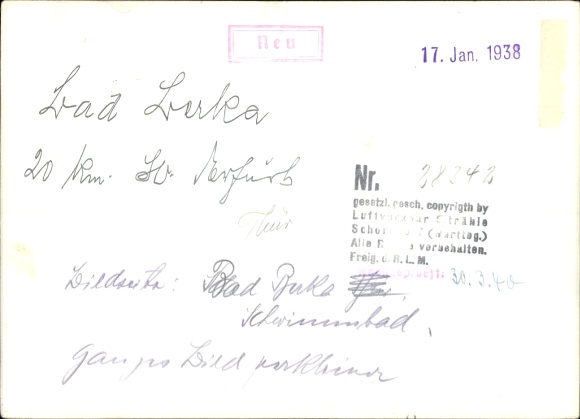 Neu
17. Jan. 1938
Bad Berka
20 km. SO. Erfurt
Thür
Nr. 28242
gesetzl. gesch. copyrigth by
Luftverkehr Strähle
Schorndorf (Württbg.)
Alle Rechte vorbehalten.
Freig. d. R. L. M.
30.3.40
Bildseite: Bad Berka
Schwimmbad,
ganzes Bild verkleiner